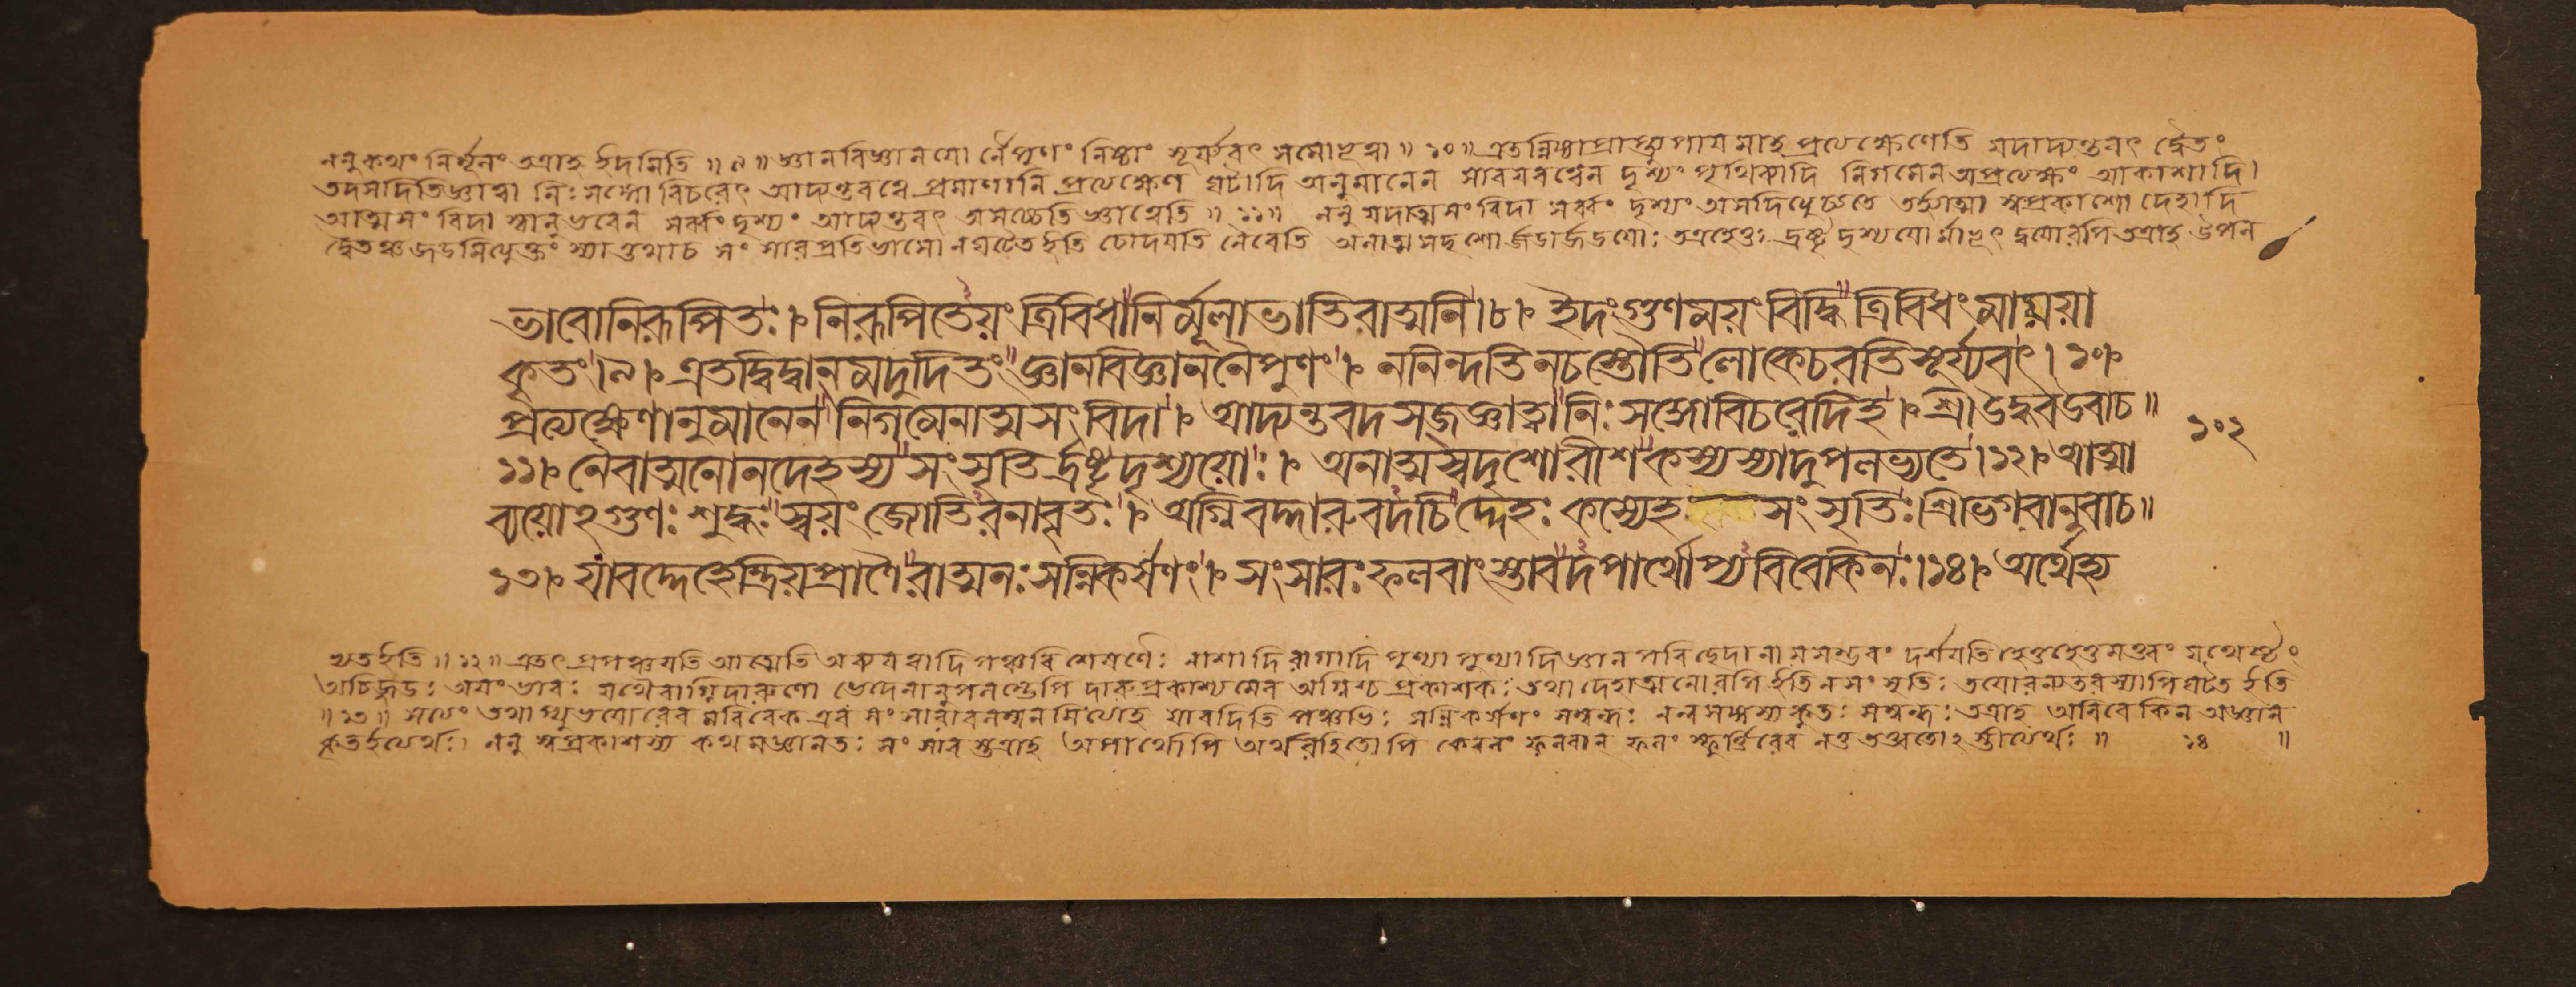 ননুকথং নির্মূলং তত্রাহ ইদমিতি ॥ ৯ ॥ জ্ঞানবিজ্ঞানয়ো র্নৈপুণং নিষ্ঠাং সূর্য্যবৎ সমোভূত্বা ॥ ১০ ॥ এতন্নিষ্ঠাপ্রাপ্ত্যুপায়মাহ প্রত্যেক্ষেণেতি যদাদ্যন্তবৎ দ্বৈতং
তদসদিতিজ্ঞাত্বা নিঃসঙ্গো বিচরেৎ আদ্যন্তবত্ত্বে প্রমাণানি প্রত্যেক্ষেণ ঘটাদি অনুমানেন সাবয়বত্বেন দৃশ্যং পৃথিব্যাদি নিগমেন অপ্রত্যেক্ষং আকাশাদি।
আত্মসংবিদা স্বানুভবেন সর্ব্বং দৃশ্যং আদ্যন্তবৎ অসচ্চেতি জ্ঞাত্বেতি ॥ ১১ ॥ ননু যদাত্মসংবিদা সর্ব্বং দৃশ্যং অসদিত্যুচ্যতে তর্হ্যাত্মা স্বপ্রকাশো দেহাদি
দ্বৈতঞ্চ জড়মিত্যুক্তং স্যাত্তথাচ সংসারপ্রতিভাসো নঘটেত ইতি চোদয়তি নৈবেতি অনাত্মসদৃশো র্জড়াজড়য়োঃ তত্রহেতুঃ দ্রষ্টৃদৃশ্যয়ো র্মাভূৎ দ্বয়োরপি তত্রাহ উপল
ভাবোনিরূপিতঃ। নিরূপিতেয়ং ত্রিবিধানির্মূলাভাতিরাত্মনি।৮। ইদংগুণময়ংবিদ্ধি ত্রিবিধংমায়য়া
কৃতং।৯। এতদ্বিদ্বান্মদুদিতং জ্ঞানবিজ্ঞাননৈপুণং। ননিন্দতিনচস্তৌতি লোকেচরতিসূর্য্যবৎ।১০।
প্রত্যক্ষেণানুমানেন নিগমেনাত্মসংবিদা। আদ্যন্তবদসজজ্ঞাত্বা নিঃসঙ্গোবিচরেদিহ। শ্রীউদ্ধবউবাচ॥
১০২
১১। নৈবাত্মনোনদেহস্য সংসৃতির্দ্রষ্টৃদৃশ্যয়োঃ। অনাত্মস্বদৃশোরীশ কস্যস্যাদুপলভ্যতে।১২। আত্মা
ব্যয়োঽগুণঃশুদ্ধঃ স্বয়ংজ্যোতিরনাবৃতঃ। অগ্নিবদ্দারুবদচি দ্দেহঃ কস্যেহ সংসৃতিঃ।শ্রীভগবানুবাচ॥
১৩। যাবদ্দেহেন্দ্রিয়প্রাণৈরাত্মনঃসন্নিকর্ষণং। সংসারঃফলবাংস্তাবদপার্থোপ্যবিবেকিনঃ।১৪। অর্থেহ্য
ভ্যত ইতি ॥ ১২ ॥ এতৎ প্রপঞ্চয়তি আত্মেতি অব্যয়ত্বাদি পঞ্চবিশেষণৈঃ নাশাদি রাগাদি পুণ্যাপুণ্যাদি জ্ঞানপরিচ্ছেদানামসম্ভবং দর্শয়তি হেতুহেতুমত্ত্বং যথেষ্টং
অচিজ্জড়ঃ অয়ংভাবঃ যথৈবাগ্নিদারুণো র্ভেদেনানুপলম্ভেপি দারুপ্রকাশ্যমেব অগ্নিশ্চ প্রকাশকঃ তথা দেহাত্মনোরপি ইতি নসংসৃতিঃ তয়োরন্যতরস্যাপি ঘটেত ইতি
॥ ১৩ ॥ সত্যং তথাপ্যুভয়োরেব মবিবেক এব সংসারাবলম্বনমিত্যাহ যাবদিতি পঞ্চভিঃ সন্নিকর্ষণং সম্বন্ধঃ নন্বসঙ্গস্য কুতঃ সম্বন্ধঃ তত্রাহ অবিবেকিন অজ্ঞান
কৃত ইত্যর্থঃ। ননু স্বপ্রকাশস্য কথমজ্ঞানতঃ সংসার স্তত্রাহ অপার্থোপি অর্থরহিতোপি কেবলং ফলবান্ ফলং স্ফূর্ত্তিরেব নতু তত্ত্বতোঽস্তীত্যর্থঃ ॥ ১৪ ॥